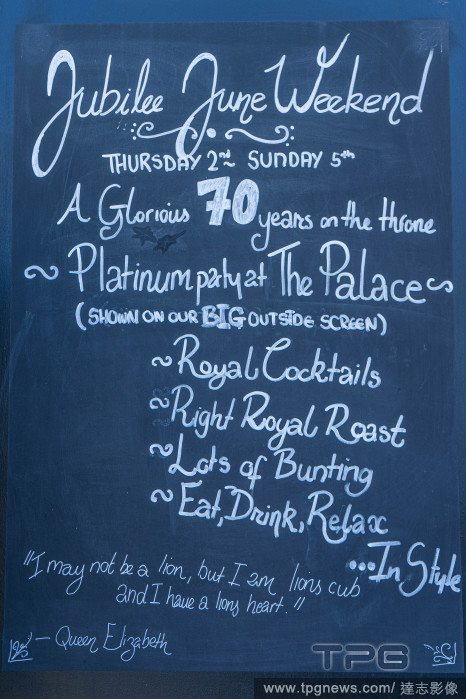 Jubilee June Weekend
THURSDAY 2nd SUNDAY 5th
A Glorious 70 years on the throne
~ Platinum party at The Palace ~
(SHOWN ON OUR BIG OUTSIDE SCREEN)
~ Royal Cocktails
~ Right Royal Roast
~ Lots of Bunting
~ Eat, Drink, Relax
...In Style
"I may not be a lion, but I am lions cub
and I have a lions heart."
— Queen Elizabeth
TPG
www.tpgnews.com/ 達志影像